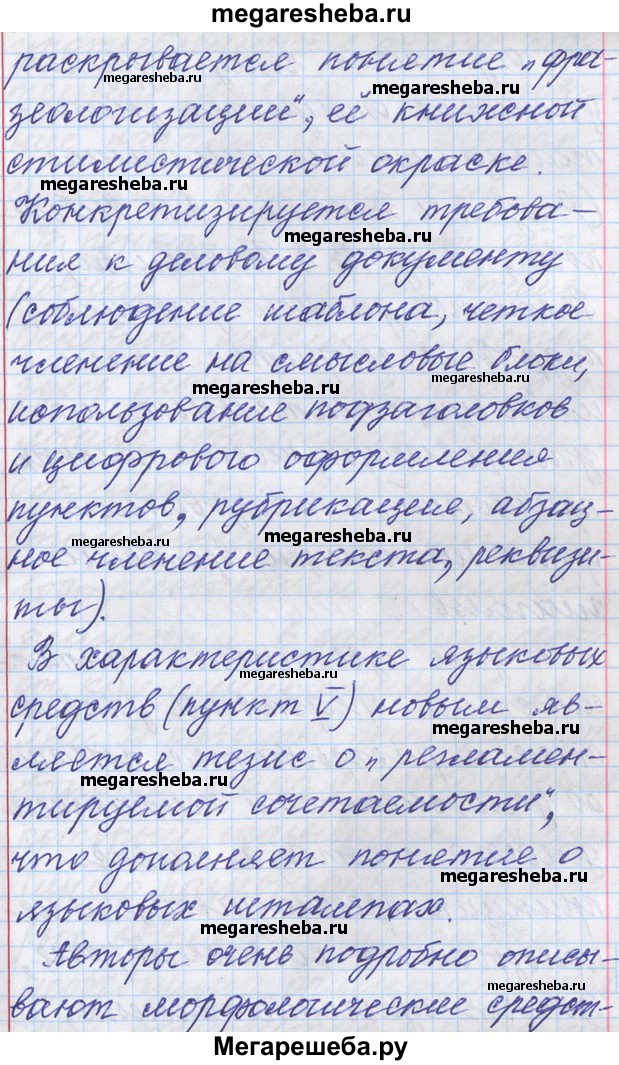 megaresheba.ru
раскрывается понятие „фра-
megaresheba.ru
megaresheba.ru
зеологизации", её книжной
стилистической окраске.
megaresheba.ru
Конкретизируется требова-
megaresheba.ru
ния к деловому документу
(соблюдение шаблона, четкое
членение на смысловые блоки,
megaresheba.ru
megaresheba.ru
использование подзаголовков
и цифрового оформления
пунктов, рубрикация, абзац-
megaresheba.ru
megaresheba.ru
ное членение текста, реквизи-
ты).
В характеристике языковых
megaresheba.ru
средств (пункт V) новым яв-
megaresheba.ru
ляется тезис о „регламен-
megaresheba.ru
тируемой сочетаемости",
что дополняет понятие о
megaresheba.ru
языковых штампах.
megaresheba.ru
Авторы очень подробно описы-
megaresheba.ru
вают морфологические средст-
Мегарешеба.ру